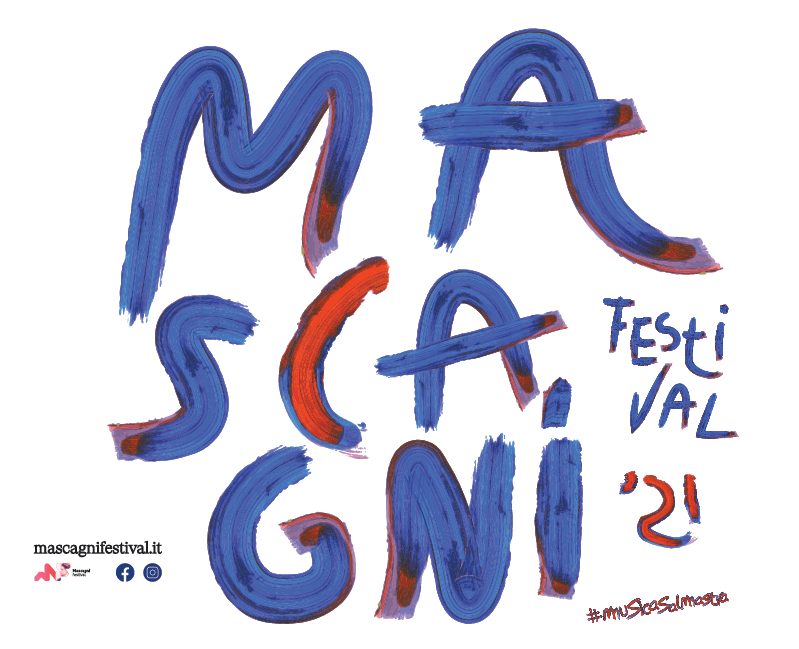 MA
SCA
GNi
FEsti
VAL
'21
mascagnifestival.it
Mascagni
festival
#musicasalmastra